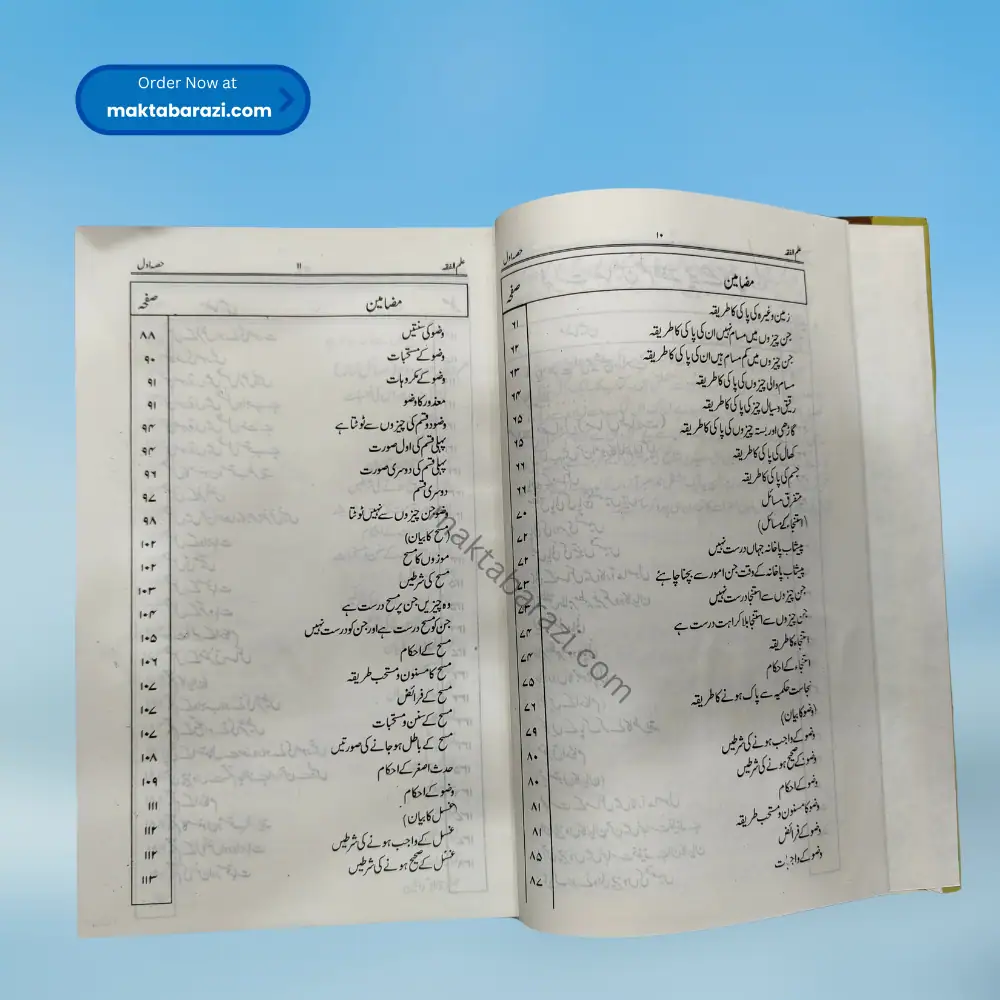 Order Now at
maktabarazi.com
علم الفقہ ۱۰ حصہ اول
مضامین صفحہ
زمین وغیرہ کی پاکی کا طریقہ ۶۱
جن چیزوں میں مسام نہیں ان کی پاکی کا طریقہ ۶۲
جن چیزوں میں کم مسام ہیں ان کی پاکی کا طریقہ ۶۳
مسام والی چیزوں کی پاکی کا طریقہ ۶۴
رقیق و سیال چیز کی پاکی کا طریقہ ۶۵
گاڑھی اور بستہ چیزوں کی پاکی کا طریقہ ۶۵
کھال کی پاکی کا طریقہ ۶۶
جسم کی پاکی کا طریقہ ۶۶
متفرق مسائل ۷۰
(استنجاء کے مسائل) ۷۲
پیشاب پاخانہ جہاں درست نہیں ۷۲
پیشاب پاخانہ کے وقت جن امور سے بچنا چاہئے ۷۳
جن چیزوں سے استنجا درست نہیں ۷۳
جن چیزوں سے استنجا بلا کراہت درست ہے ۷۴
استنجاء کا طریقہ ۷۴
استنجاء کے احکام ۷۵
نجاست حکمیہ سے پاک ہونے کا طریقہ ۷۶
(وضو کا بیان) ۷۹
وضو کے واجب ہونے کی شرطیں ۸۰
وضو کے صحیح ہونے کی شرطیں ۸۰
وضو کے احکام ۸۱
وضو کا مسنون و مستحب طریقہ ۸۱
وضو کے فرائض ۸۵
وضو کے واجبات ۸۷
علم الفقہ ۱۱ حصہ اول
مضامین صفحہ
وضو کی سنتیں ۸۸
وضو کے مستحبات ۹۰
وضو کے مکروہات ۹۱
معذور کا وضو ۹۱
وضو دو قسم کی چیزوں سے ٹوٹتا ہے ۹۴
پہلی قسم کی اول صورت ۹۴
پہلی قسم کی دوسری صورت ۹۶
دوسری قسم ۹۷
وضو جن چیزوں سے نہیں ٹوٹتا ۹۸
(مسح کا بیان) ۱۰۲
موزوں کا مسح ۱۰۲
مسح کی شرطیں ۱۰۳
وہ چیزیں جن پر مسح درست ہے ۱۰۴
جن کو مسح درست ہے اور جن کو درست نہیں ۱۰۵
مسح کے احکام ۱۰۶
مسح کا مسنون و مستحب طریقہ ۱۰۷
مسح کے فرائض ۱۰۷
مسح کے سنن و مستحبات ۱۰۷
مسح کے باطل ہو جانے کی صورتیں ۱۰۸
حدث اصغر کے احکام ۱۰۹
وضو کے احکام ۱۱۱
(غسل کا بیان) ۱۱۲
غسل کے واجب ہونے کی شرطیں ۱۱۲
غسل کے صحیح ہونے کی شرطیں ۱۱۳
maktabarazi.com